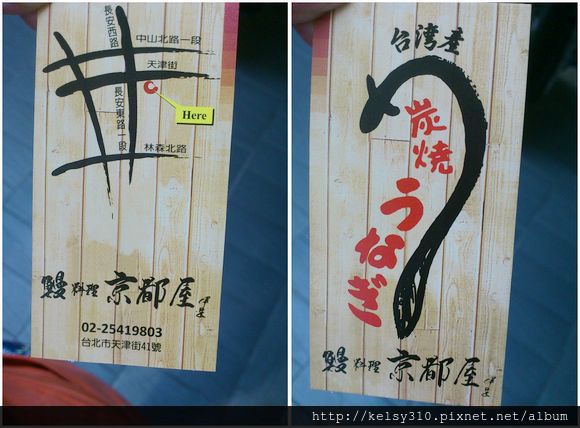 長安西路
中山北路一段
天津街
長安東路一段
Here
林森北路
鰻料理 京都屋
02-25419803
台北市天津街41號
台湾産
炭燒
うなぎ
鰻料理 京都屋
http://kelsy310.pixnet.net/album